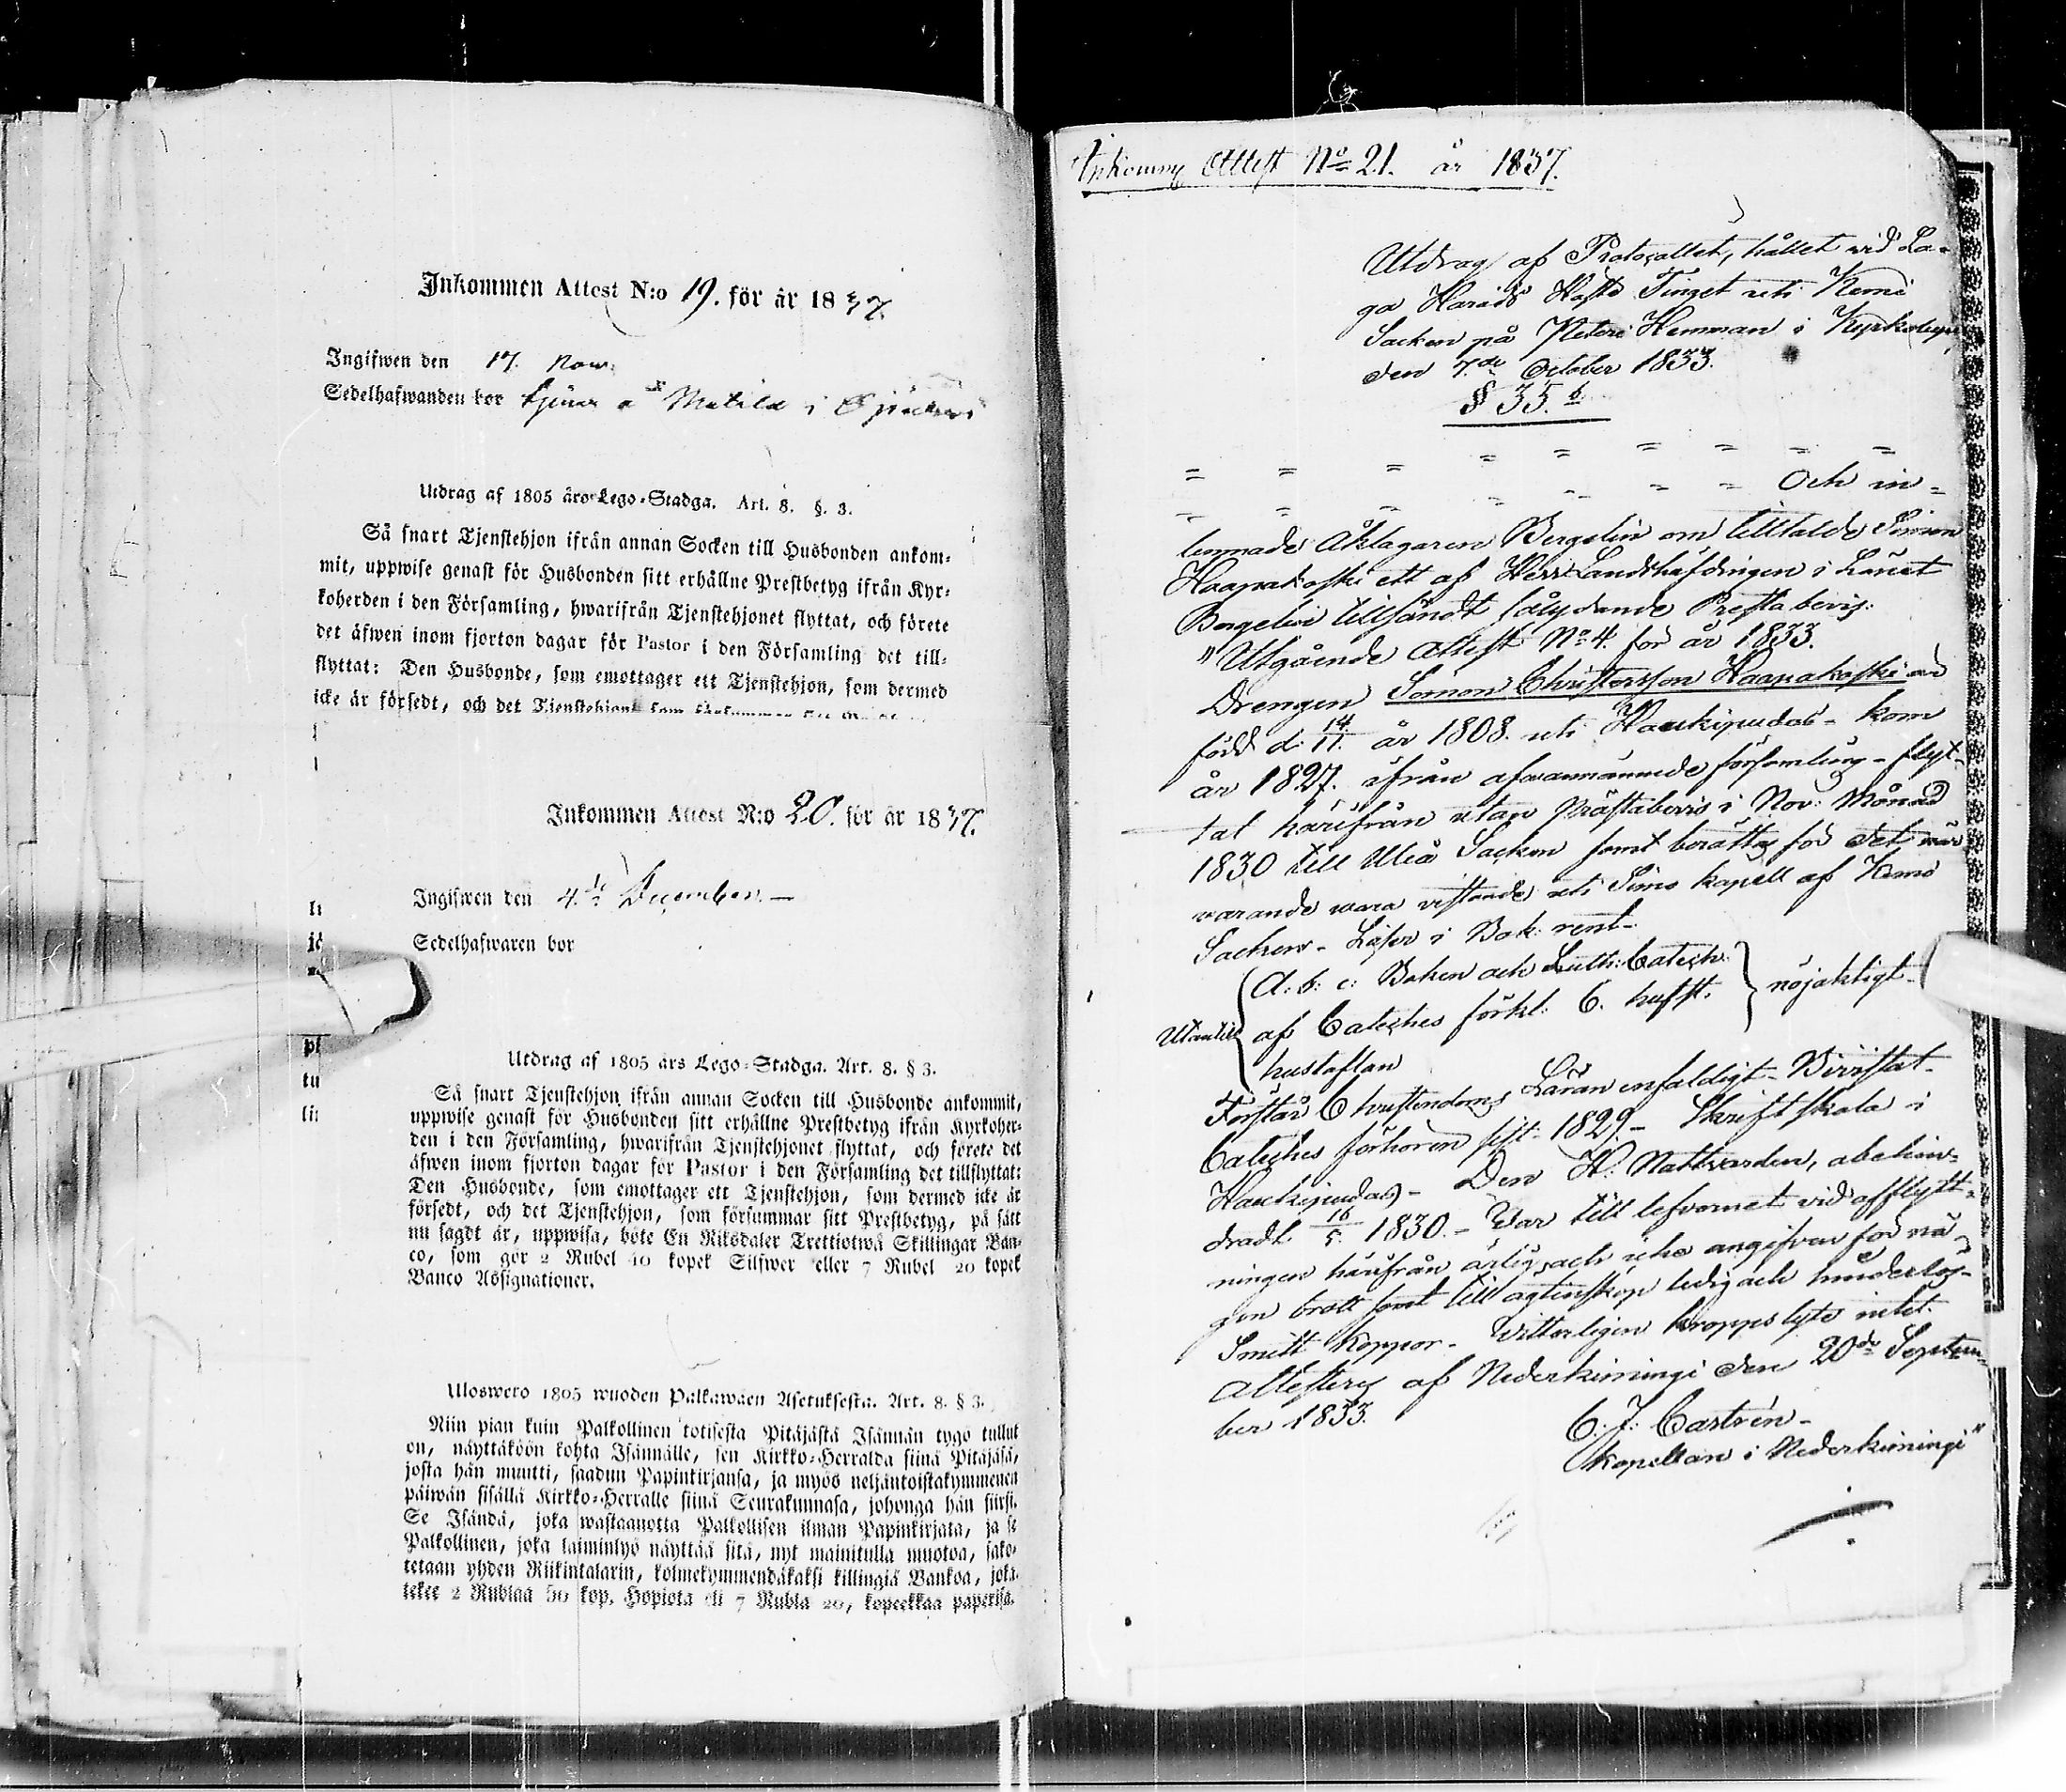 Inkommen Attest N:o 19. för år 1837.
Ingifwen den 17. Nov.
Sedelhafwanden bor tjenar å Matila i
Utdrag af 1805 års Lego-Stadga. Art. 8. §. 3.
Så snart Tjenstehjon ifrån annan Socken till Husbonden ankom-
mit, uppwise genast för Husbonden sitt erhållne Prestbetyg ifrån Kyr-
koherden i den Församling, hwarifrån Tjenstehjonet flyttat, och förete
det äfwen inom fjorton dagar för Pastor i den Församling det till-
flyttat: Den Husbonde, som emottager ett Tjenstehjon, som dermed
icke är försedt, och det Tjenstehjon
Inkommen Attest N:o 20. för år 1837.
Ingifwen den 4:de December. —
Sedelhafwaren bor
Utdrag af 1805 års Lego-Stadga. Art. 8. § 3.
Så snart Tjenstehjon ifrån annan Socken till Husbonde ankommit,
uppwise genast för Husbonden sitt erhållne Prestbetyg ifrån Kyrkoher-
den i den Församling, hwarifrån Tjenstehjonet flyttat, och förete det
äfwen inom fjorton dagar för Pastor i den Församling det tillflyttat:
Den Husbonde, som emottager ett Tjenstehjon, som dermed icke är
försedt, och det Tjenstehjon, som försummar sitt Prestbetyg, på sätt
nu sagdt är, uppwisa, böte En Riksdaler Trettiotwå Skillingar Ban-
co, som gör 2 Rubel 40 kopek Silfwer eller 7 Rubel 20 kopek
Banco Assignationer.
Uloswero 1805 wuoden Palkawäen Asetuksesta. Art. 8. § 3.
Niin pian kuin Palkollinen toisesta Pitäjästä Isännän tygö tullut
on, näyttäköön kohta Isännälle, sen Kirkko-Herralda siinä Pitäjäsä,
josta hän muutti, saadun Papinkirjansa, ja myös neljäntoistakymmenen
päiwän sisällä Kirkko-Herralle siinä Seurakunnasa, johonga hän siirsi.
Se Isändä, joka wastaanotta Palkollisen ilman Papinkirjata, ja se
Palkollinen, joka laiminlyö näyttää sitä, nyt mainitulla muotoa, sako-
tetaan yhden Riikintalarin, kolmekymmendäkaksi killingiä Bankoa, joka
tekee 2 Rublaa 50 kop. Hopiota eli 7 Rubla 20, kopeekkaa paperisa.
Inkommen Attest No 21. år 1837.
Utdrag af Protocollet, hållet vid La-
ga Härads Höste Tinget uti Kemi
Socken på Pleteri Hemman i Kyrkobyn,
den 7:de October 1833.
§ 35.
= = = = = = = =
= = = = = = Och in-
lemnade Åklagaren Bergelin om tilltalde Simon
Haapakoski ett af Herr Landshöfdingen i Länet
Bergelin tillsändt sålydande Prestabevis:
"Utgående Attest No 4. för år 1833.
Drengen Simon Christersson Haapakoski är
född d: 14/11. år 1808. uti Haukipudas - kom
år 1827. ifrån ofvannämnde församling - flyt-
tat härifrån utan Prästabevis i Nov: Månad
1830 till Uleå Socken samt berättas för det när-
varande vara vistande uti Simo kapell af Kemi
Socken - Läser i Bok: rent -
Utantill { A: b: c: Boken och Luth: Catech:
af Catechis förkl: 6. hufst. } nöjaktigt -
hustaflan
Förstår Christendoms Läran enfaldigt - Bivistat
Catechis förhören sist 1829. - Skriftskola i
Haukipudas) - Den H. Nattvarden, abehin-
dradt 16/5. 1830. - Var till lefvernet vid afflytt-
ningen härifrån ärlig, och icke angifven för nå-
gon brott samt till ägtenskap ledig och hinderlös -
Smitt koppor - Vitterligen kroppslyte intet.
Attesteras af Nederkiminge den 20de Septem-
ber 1833.
C. J. Castrén -
kapellan i Nederkiminge"